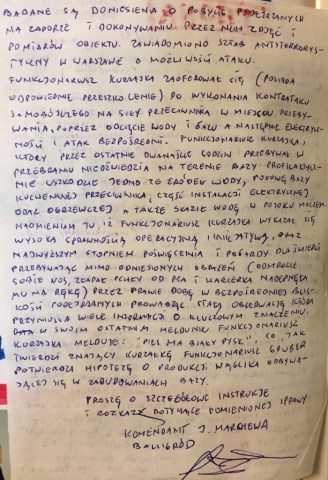 BADANE SĄ DONIESIENIA O POBYCIE PODEJRZANYCH
NA ZAPORZE I DOKONYWANIU PRZEZ NICH ZDJĘĆ I
POMIARÓW OBIEKTU. ZAWIADOMIONO SZTAB ANTYTERRORYS-
TYCZNY W WARSZAWIE O MOŻLIWOŚCI ATAKU.
FUNKCJONARIUSZ KURZAJKA ZAOFEROWAŁ SIĘ (POSIADA
ODPOWIEDNIE PRZESZKOLENIE) DO WYKONANIA KONTRATAKU
SAMOBÓJCZEGO NA SIŁY PRZECIWNIKA W MIEJSCU PRZEBY-
WANIA, POPRZEZ ODCIĘCIE WODY I GAZU A NASTĘPNIE ELEKTRYCZ-
NOŚCI I ATAK BEZPOŚREDNI. FUNKCJONARIUSZ KURZAJKA,
KTÓRY PRZEZ OSTATNIE DWANAŚCIE GODZIN PRZEBYWAŁ W
PRZEBRANIU NIEDŹWIEDZIA NA TERENIE BAZY PROFILAKTYCZ-
NIE USZKODZIŁ JEDNO ZE ŹRÓDEŁ WODY, POŁOWĘ BAZY
KUCHENNEJ PRZECIWNIKA, CZĘŚĆ INSTALACJI ELEKTRYCZNEJ
ORAZ OGRZEWCZEJ A TAKŻE SKAZIŁ WODĘ W POTOKU MOCZEM.
NADMIENIAM TU, IŻ FUNKCJONARIUSZ KURZAJKA WYKAZAŁ SIĘ
WYSOKĄ SPRAWNOŚCIĄ OPERACYJNĄ I INICJATYWĄ, ORAZ
NAJWYŻSZYM STOPNIEM POŚWIĘCENIA I POGARDY DLA ŚMIERCI
PRZEBYWAJĄC MIMO ODNIESIONYCH OBRAŻEŃ (ODMROZIŁ
SOBIE NOS, ZŁAPAŁ PCHŁY OD PSA I HARCERKA NADEPNĘŁA
MU NA RĘKĘ) PRZEZ PRAWIE DOBĘ W BEZPOŚREDNIEJ BLIS-
KOŚCI PODEJRZANYCH PROWADZĄC STAŁĄ OBSERWACJĘ KTÓRA
PRZYNIOSŁA WIELE INFORMACJI O KLUCZOWYM ZNACZENIU.
W SWOIM OSTATNIM MELDUNKU FUNKCJONARIUSZ
KURZAJKA MELDUJE: "PIES MA BIAŁY PYSK". CO, JAK
TWIERDZI ZNAJĄCY KURZAJKĘ FUNKCJONARIUSZ GRUBER
POTWIERDZA HIPOTEZĘ O PRODUKCJI WĄGLIKA ODBYWA-
JĄCEJ SIĘ W ZABUDOWANIACH BAZY.
PROSZĘ O SZCZEGÓŁOWE INSTRUKCJE
I ROZKAZY DOTYCZĄCE POMIENIONEJ SPRAWY
KOMENDANT J. MARDIEWA
BALIGRÓD